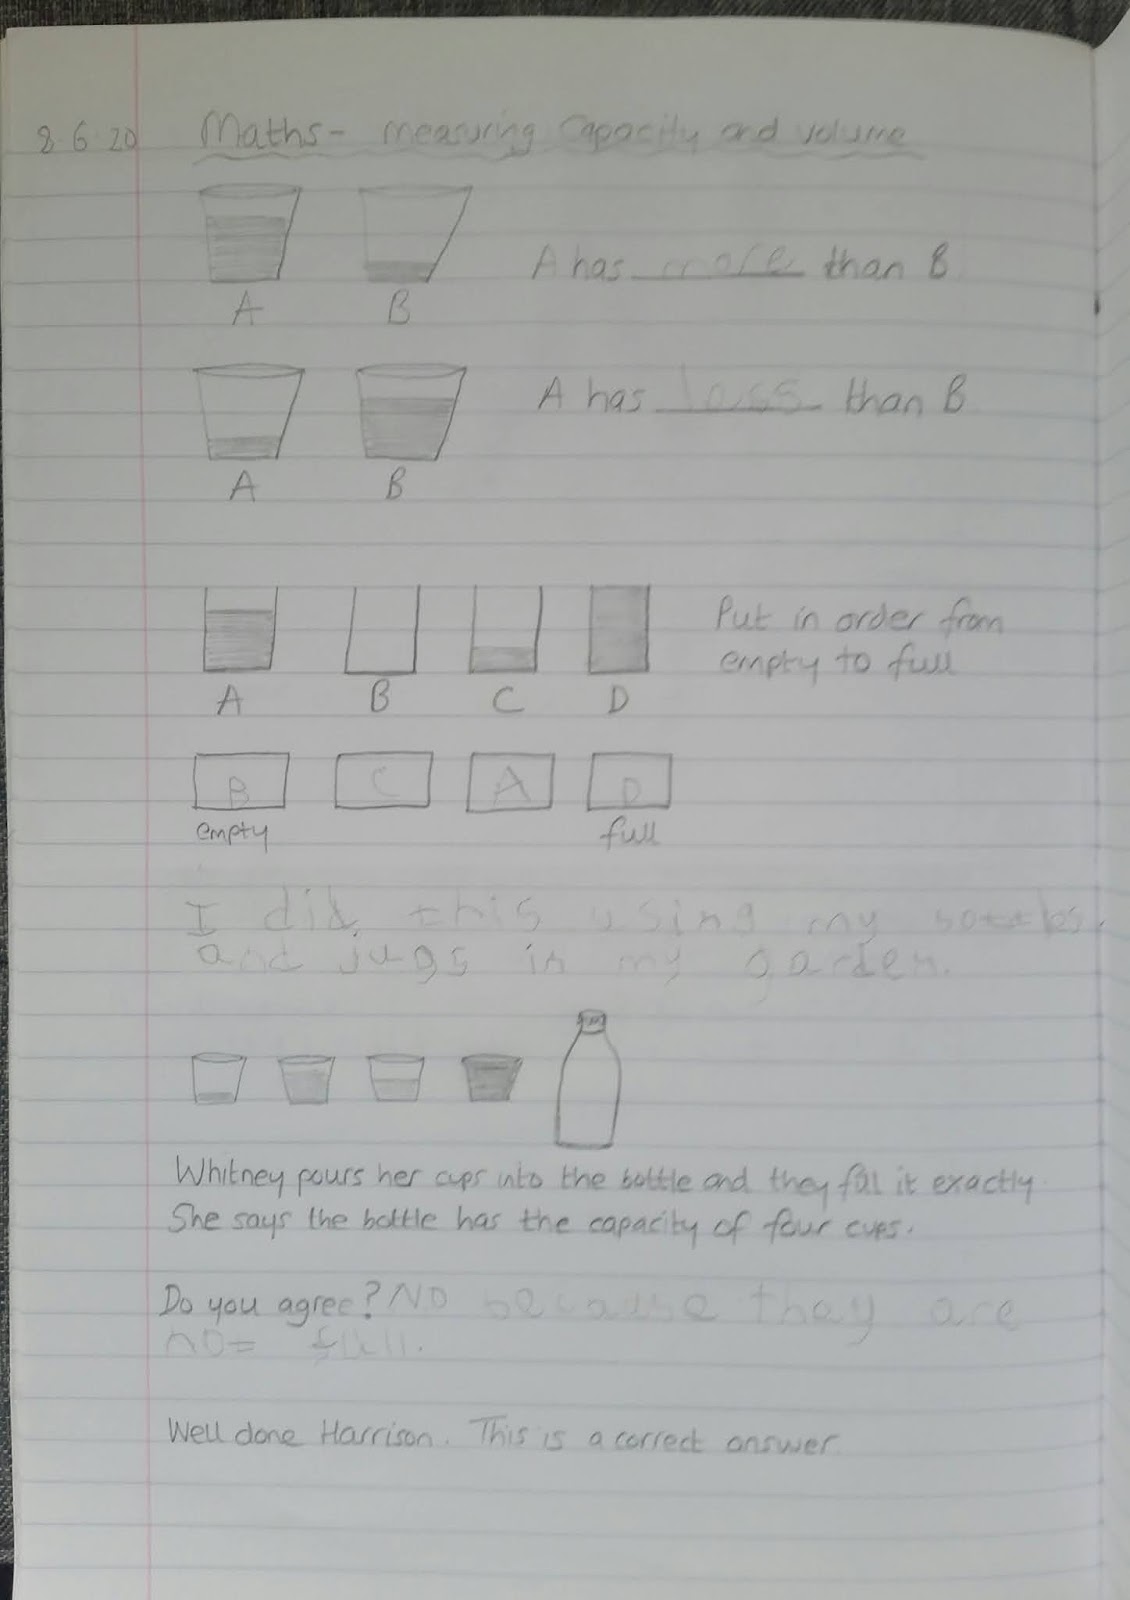 8.6.20 Maths- measuring capacity and volume
A has more than B
A B
A has less than B
A B
Put in order from
empty to full
A B C D
B C A D
empty full
I did this using my bottles
and jugs in my garden.
Whitney pours her cups into the bottle and they fill it exactly.
She says the bottle has the capacity of four cups.
Do you agree? NO because thay are
not full.
Well done Harrison. This is a correct answer